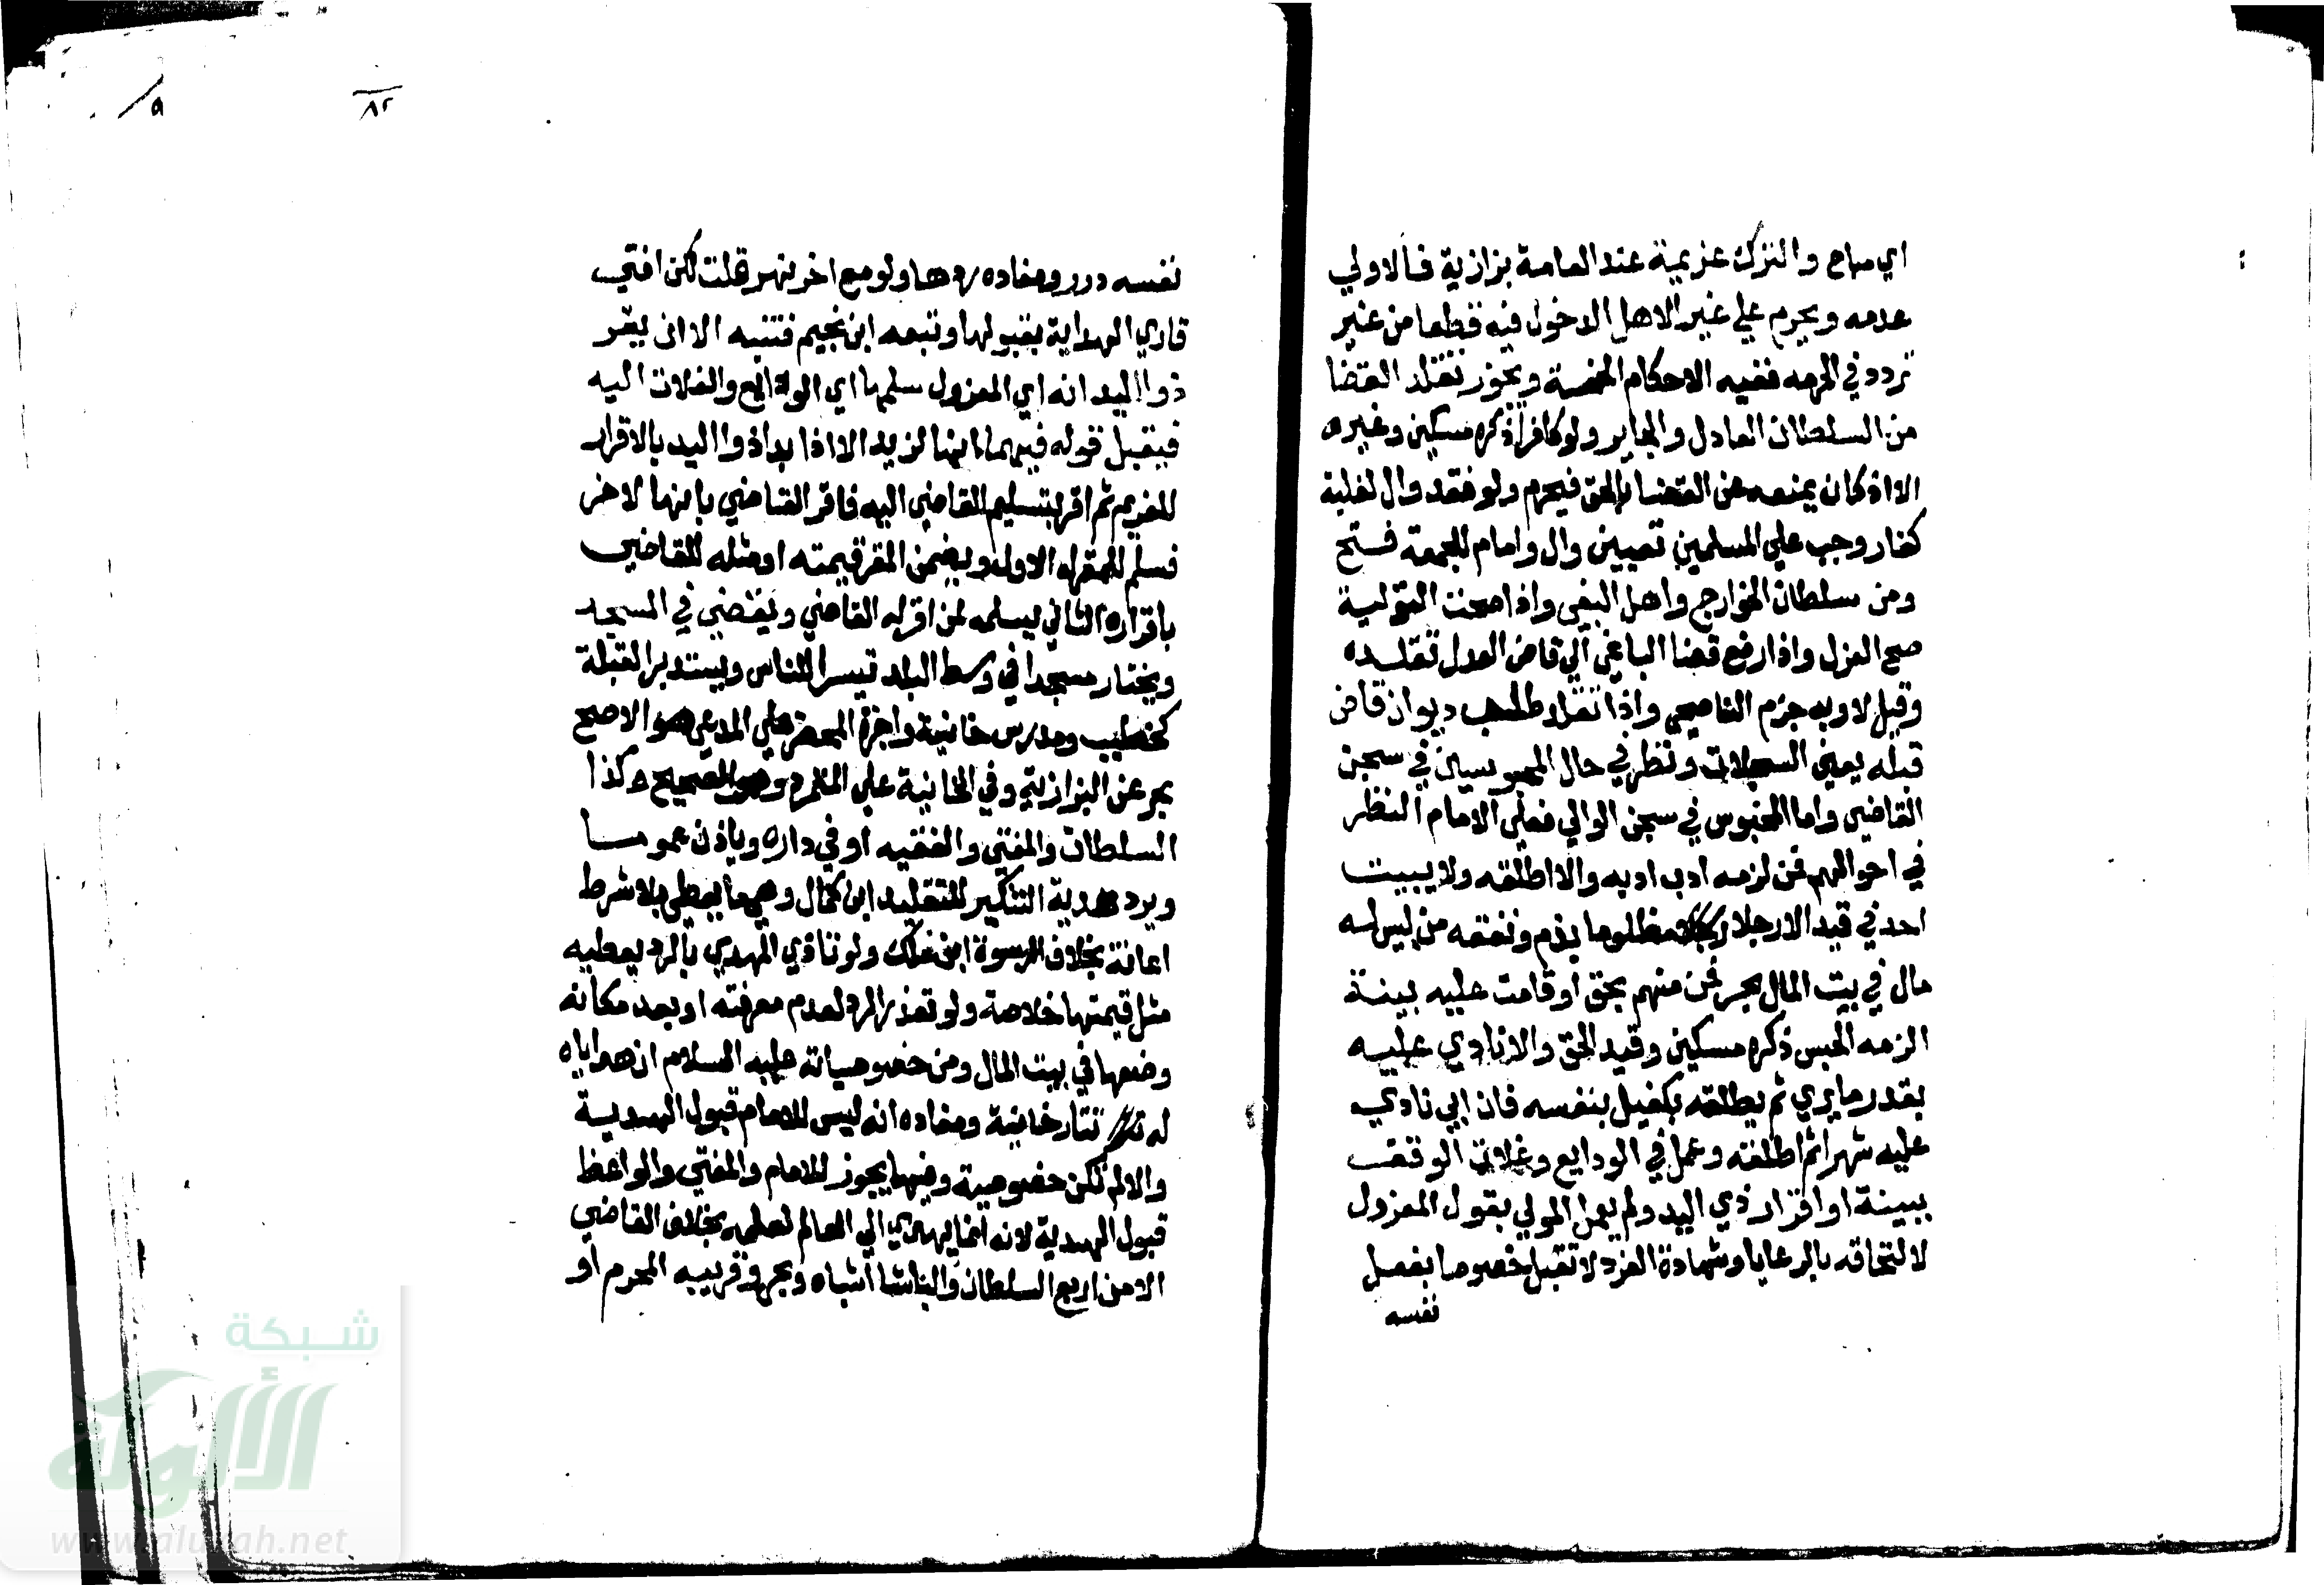 اي مباح والترك عزيمة عند العامة بزازية فالاولي
عدمه ويحرم علي غير الاهل الدخول فيه قطعا من غير
تردد في الحرمه ففيه الاحكام الخمسة ويجوز تقلد القضا
من السلطان العادل والجاير ولو كافرا ذكره مسكين وغيره
الا اذ كان يمنعه عن القضا بالحق فيحرم ولو فقد وال لغلبة
كفار وجب علي المسلمين تعيين وال وامام للجمعة فتح
ومن سلطان الخوارج واهل البغي واذا صحت التولية
صح العزل واذا رفع قضا الباغي الي قاض العدل نفسده
وقيل لا وبه جزم الناصحي واذا تقلد طلب ديوان قاض
قبله يعني السجلات ونظر في حال المحبوسين في سجن
القاضي واما المحبوس في سجن الوالي فعلي الامام النظر
في احوالهم فمن لزمه ادب ادبه والا اطلقه ولا يبيت
احد في قيد الا رجلا مطلوما بدم ونفقه من ليس له
مال في بيت المال بحر فمن منهم بحق او قامت عليه بينة
الزمه الحبس ذكره مسكين وقيد الحق والا نادي عليه
بقدر ما يري ثم يطلقه بكفيل بنفسه فان ابي نادي
عليه شهرا ثم اطلقه وعمل في الودايع وغلات الوقف
ببينة او اقرار ذي اليد ولم يعمل المولي بقول المعزول
لالتحاقه بالرعايا وشهادة الفرد لا تقبل خصوصا بفعل
نفسه
نفسه درر ومفاده ردها ولو مع اخر نهر قلت لكن افتي
قاري الهداية بقبولها وتبعه ابن نجيم فتنبه الا ان يقر
ذو اليد انه اي المعزول سلمها اي الودائع والغلات اليه
فيقبل قوله فيهما انها لزيد الا اذا بدا ذو اليد بالاقرار
للغير ثم اقر بتسليم القاضي اليه فاقر القاضي بانها لاخر
فسلم للمقر له الاول ويضمن المقر قيمته او مثله للقاضي
باقراره الثاني يسلمه لمن اقر له القاضي ويقضي في المسجد
ويختار مسجدا في وسط البلد تيسرا للناس ويستدبر القبلة
كخطيب ومدرس خانية واجرة المحضر علي المدعي هو الاصح
بحر عن البزازية وفي الخانية علي المتمرد وهو الصحيح وكذا
السلطان والمفتي والفقيه او في داره وياذن عموما
ويرد هدية التنكير للتقليد ابن كمال وهي ما يعطي بلا شرط
اعانة بخلاف الرسوة ابن ملك ولو تاذي المهدي بالرد يعطيه
مثل قيمتها خلاصة ولو تعذر الرد لعدم معرفته او بعد مكانه
وضعها في بيت المال ومن خصوصياته عليه السلام ان هداياه
له تتارخانية ومفاده انه ليس للامام قبول الهدية
والا لم تكن خصوصية وفيها يجوز للامام والمفتي والواعظ
قبول الهدية لانه انما يهدي الي العالم لعلمه بخلاف القاضي
الا من اربع السلطان والباشا اشباه وبحر وقريبه المحرم او
٨٢
شبكة
الألوكة
www.alukah.net